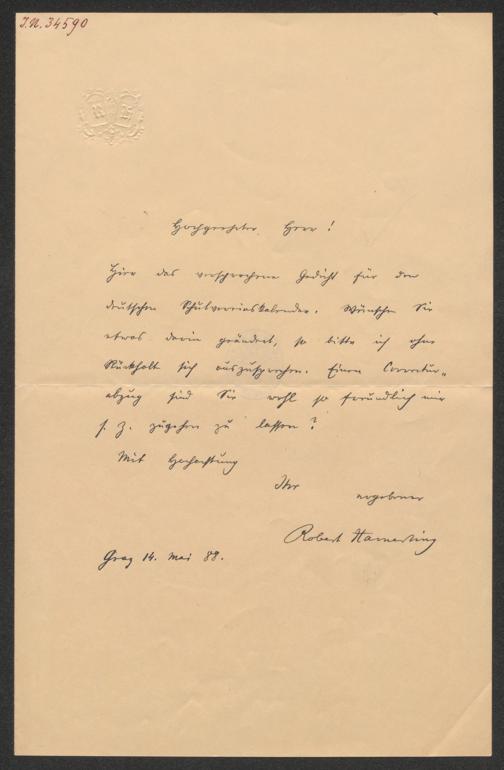 J.N. 34590
Hochgeehrter Herr!
Hier das versprochene Gedicht für den
deutschen Schulvereinskalender. Wünschen Sie
etwas darin geändert, so bitte ich ohne
Rückhalt sich auszusprechen. Einen Correctur-
abzug sind Sie wohl so freundlich mir
s. Z. zugehen zu lassen?
Mit Hochachtung
Ihr
ergebener
Robert Hamerling
Graz 14. Mai 88.